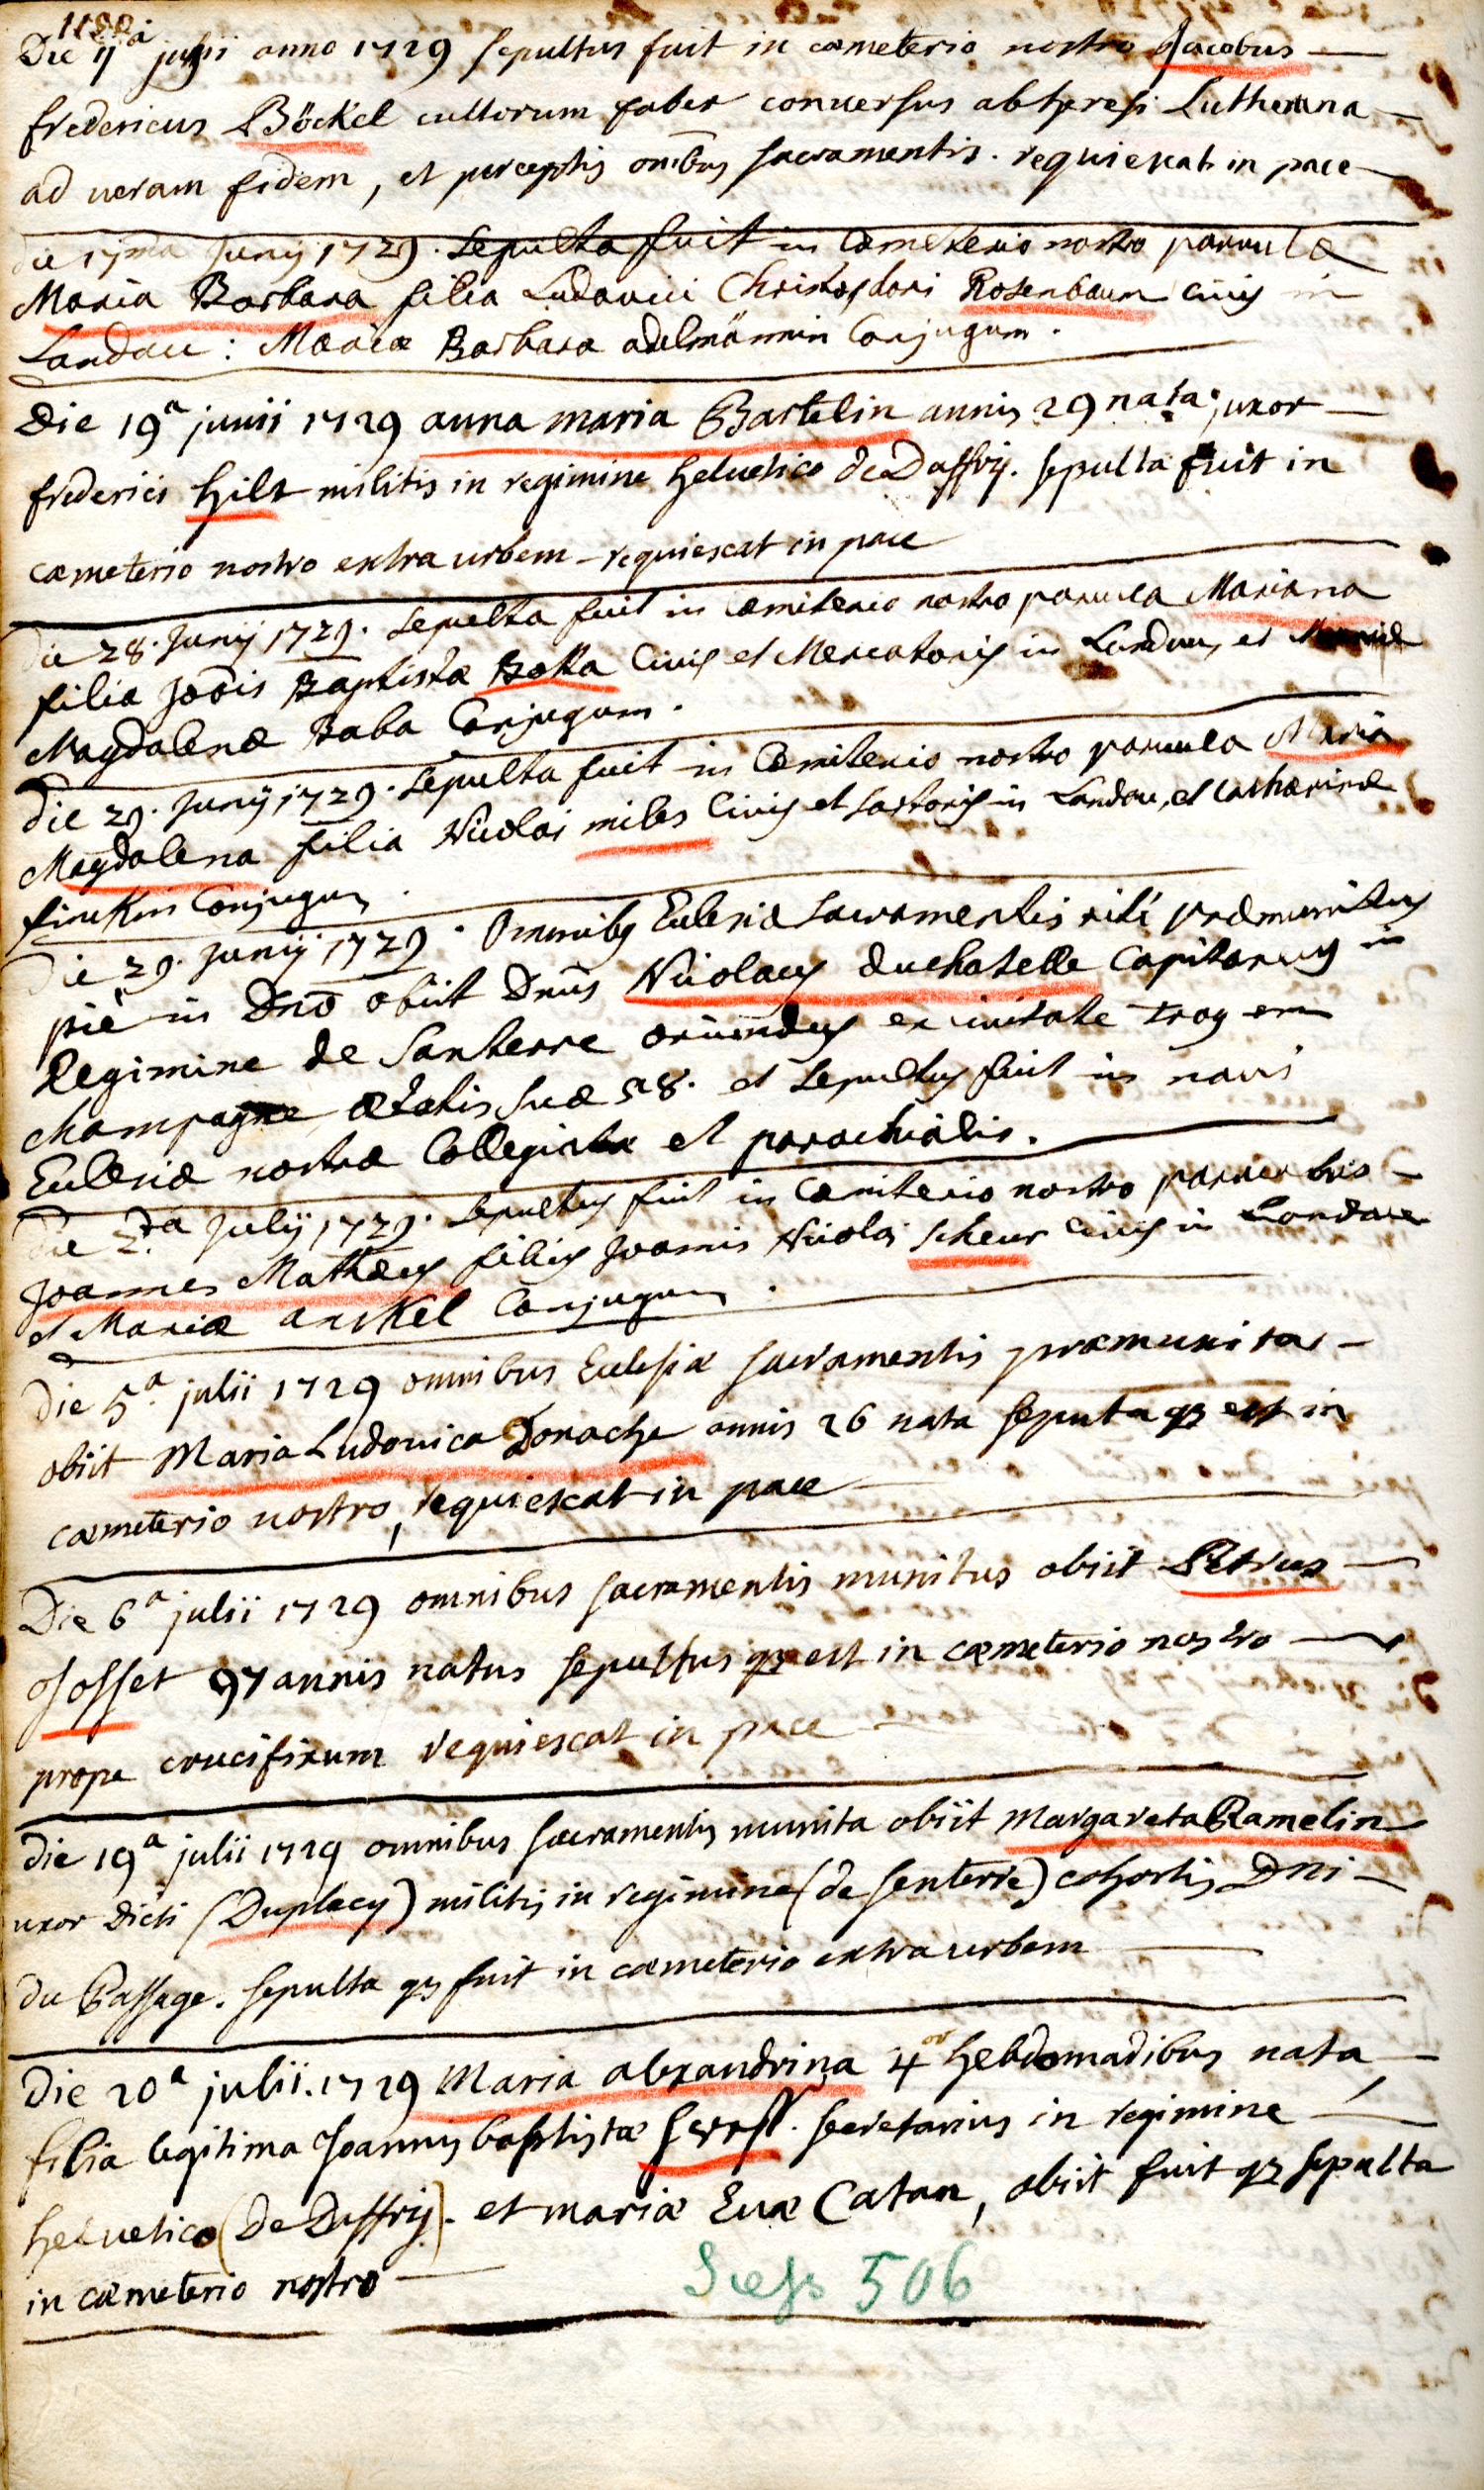 Die 11ª junii anno 1729 sepultus fuit in cæmeterio nostro Jacobus
fredericus Böckel cultorum faber conversus ab hæresi Lutherana
ad veram fidem, et perceptis omibus sacramentis. requiescat in pace
die Junij 1729. Sepulta fuit in Cœmeterio nostro parvula
Maria Barbara filia Ludovici Christophori Rosenbaum civis in
Landau: Mariæ Barbara adelmännin Conjugum.
Die 19ª junii 1729 anna maria Bartelin annis 29 nata, uxor
frederici hilt militis in regimine helvetico de Daffrij. sepulta fuit in
cæmeterio nostro extra urbem – requiescat in pace
die 28. Junij 1729. Sepulta fuit in Cœmiterio nostro parvula Mariana
filia Jōōis Baptistæ Botta Civis et Mercatoris in Landau, et
Magdalenæ Baba Conjugum.
Die 29. Junij 1729. Sepulta fuit in Cœmiterio nostro parvula Maria
Magdalena filia Nicolai miles Civis et sartoris in Landau, et Catharinæ
finckin Conjugum.
Die 29. Junij 1729. Omnibus Eclesiæ Sacramentis ritè præmunitus
piè in Dno obiit Dnus Nicolaus duchatelle Capitaneus in
Regimine de Santerre oriundus ex civitate troy em
Champagne ætatis suæ 58. et Sepultus fuit in navi
Eclesiæ nostræ Collegiatæ et parochialis.
die 2.da Julij 1729. Sepultus fuit in Cœmiterio nostro parvulus
Joannes Mathæus filius Joannis Nicolai scheur civis in Landau
et Mariæ anckel Conjugum.
Die 5.ª julii 1729 omnibus Eclesiæ sacramentis præmunita
obiit Maria Ludovica Donache annis 26 nata sepulta qz est in
cæmeterio nostro, requiescat in pace
Die 6ª julii 1729 omnibus sacramentis munitus obiit Petrus
Josset 97 annis natus sepultus qz est in cæmeterio nostro
prope crucifixum requiescat in pace
Die 19ª julii 1729 omnibus sacramentis munita obiit Margareta Ramelin
uxor dicti (Duplecy) militis in regimine (de senterre) cohortis Dni
du Passage. sepulta qz fuit in cæmeterio extra urbem
Die 20ª julii. 1729 Maria alexandrina 4or hebdomadibus nata
filia legitima Joannis baptistæ secretarius in regimine
helvetico (De Daffrij). et mariæ Evæ Catan, obiit fuit qz sepulta
in cæmeterio nostro
506